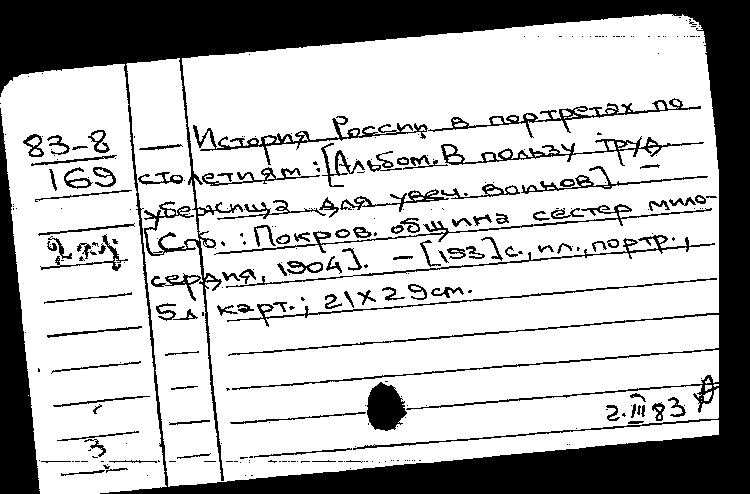 83-8
169
2 экз
— История России в портретах по
столетиям : [Альбом. В пользу труд.
убежища для увеч. воинов]. –
[Спб. : Покров. община сестер мило-
сердия, 1904]. – [193]с., ил., портр.,
5 л. карт.; 21 x 29 см.
2.III 83
3